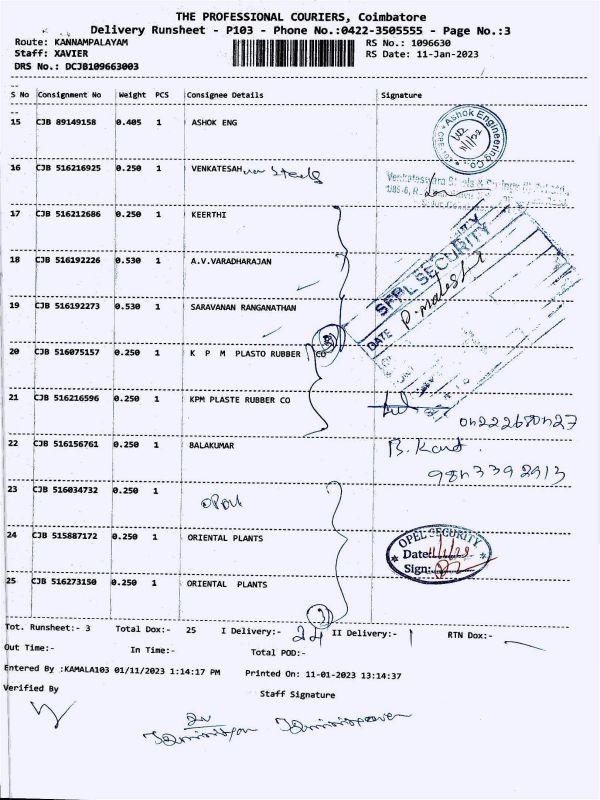 THE PROFESSIONAL COURIERS, Coimbatore
Delivery Runsheet - P103 - Phone No.:0422-3505555 - Page No.:3
Route: KANNAMPALAYAM RS No.: 1096630
Staff: XAVIER RS Date: 11-Jan-2023
DRS No.: DCJB109663003
S No Consignment No Weight PCS Consignee Details Signature
15 CJB 89149158 0.405 1 ASHOK ENG
Ashok Engineering Co.
16 CJB 516216925 0.250 1 VENKATESAH Steels
Venkateswara
17 CJB 516212686 0.250 1 KEERTHI
18 CJB 516192226 0.530 1 A.V.VARADHARAJAN
SFPL SECURITY
DATE
19 CJB 516192273 0.530 1 SARAVANAN RANGANATHAN
20 CJB 516075157 0.250 1 K P M PLASTO RUBBER CO
21 CJB 516216596 0.250 1 KPM PLASTE RUBBER CO
22 CJB 516156761 0.250 1 BALAKUMAR
23 CJB 516034732 0.250 1
24 CJB 515887172 0.250 1 ORIENTAL PLANTS
OPEL SECURITY
Date:
Sign:
25 CJB 516273150 0.250 1 ORIENTAL PLANTS
Tot. Runsheet:- 3 Total Dox:- 25 I Delivery:- 24 II Delivery:- 1 RTN Dox:-
Out Time:- In Time:- Total POD:-
Entered By :KAMALA103 01/11/2023 1:14:17 PM Printed On: 11-01-2023 13:14:37
Verified By Staff Signature